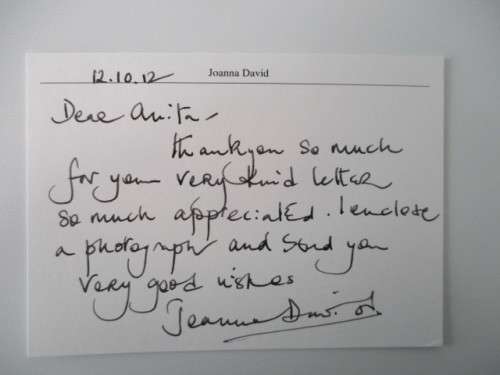 Joanna David
12.10.12
Dear Anita -
thankyou so much
for your very kind letter
so much appreciated. I enclose
a photograph and send you
very good wishes
Joanna David.